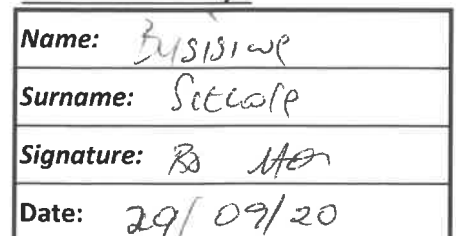 Name: Busisiwe
Surname: Sithole
Signature:
Date: 29/09/20